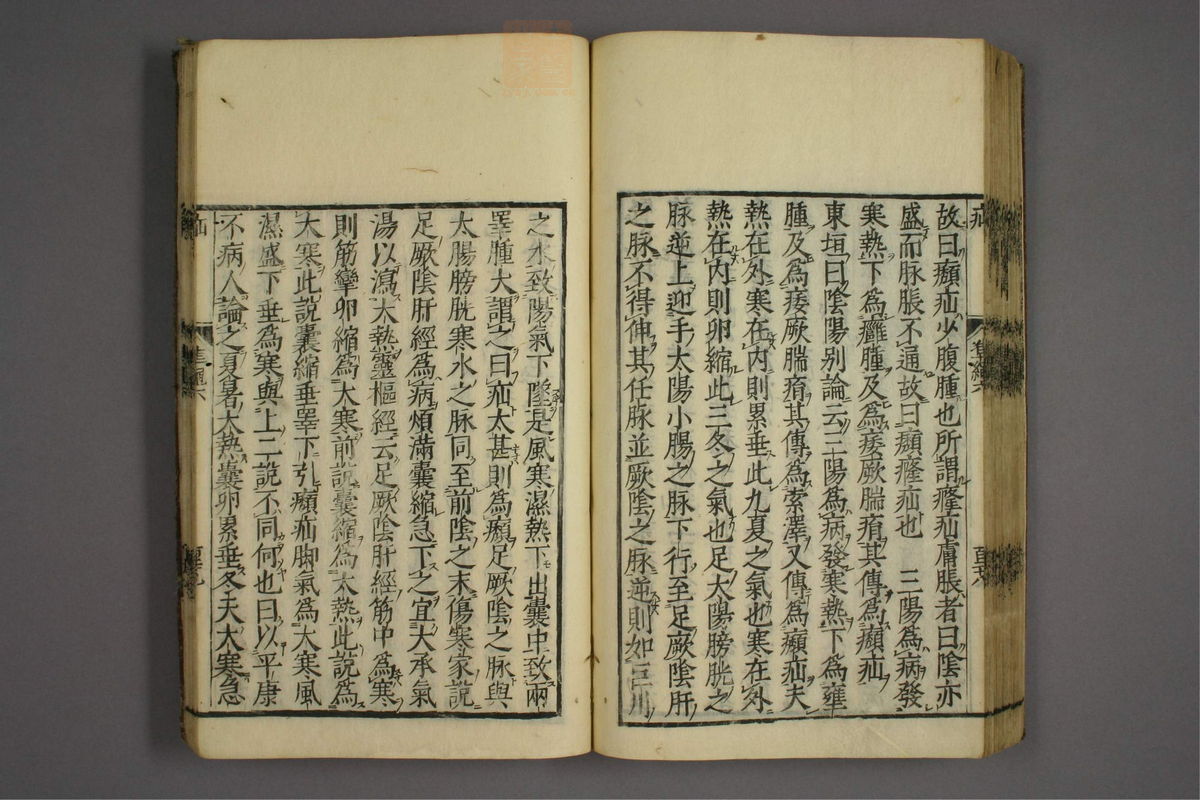 故曰㿗疝少腹腫也所謂癃疝膚脹者曰陰亦
盛而脉脹不通故曰㿗癃疝也 三陽為病發
寒熱下為癰腫及為痿厥腨㾓其傳為㿗疝
東垣曰陰陽别論云三陽為病發寒熱下為癰
腫及為痿厥腨㾓其傳為索澤又傳為㿗疝夫
熱在外寒在内則累垂此九夏之氣也寒在外
熱在内則卵縮此三冬之氣也足太陽膀胱之
脉逆上迎手太陽小腸之脉下行至足厥陰肝
之脉不得伸其任脉並厥陰之脉逆則如巨川
之水致陽氣下墜是風寒濕熱下出囊中致兩
睪腫大謂之曰疝太甚則為㿗足厥陰之脉與
太腸膀胱寒水之脉同至前陰之末傷寒家說
足厥陰肝經為病煩滿囊縮急下之宜大承氣
湯以瀉大熱靈樞經云足厥陰肝經筋中為寒
則筋攣卵縮為大寒前說囊縮為大熱此說為
大寒此說囊縮垂睪下引㿗疝脚氣為大寒風
濕盛下垂為寒與上二說不同何也曰以平康
不病人論之夏暑大熱囊卵累垂冬天大寒急
疝